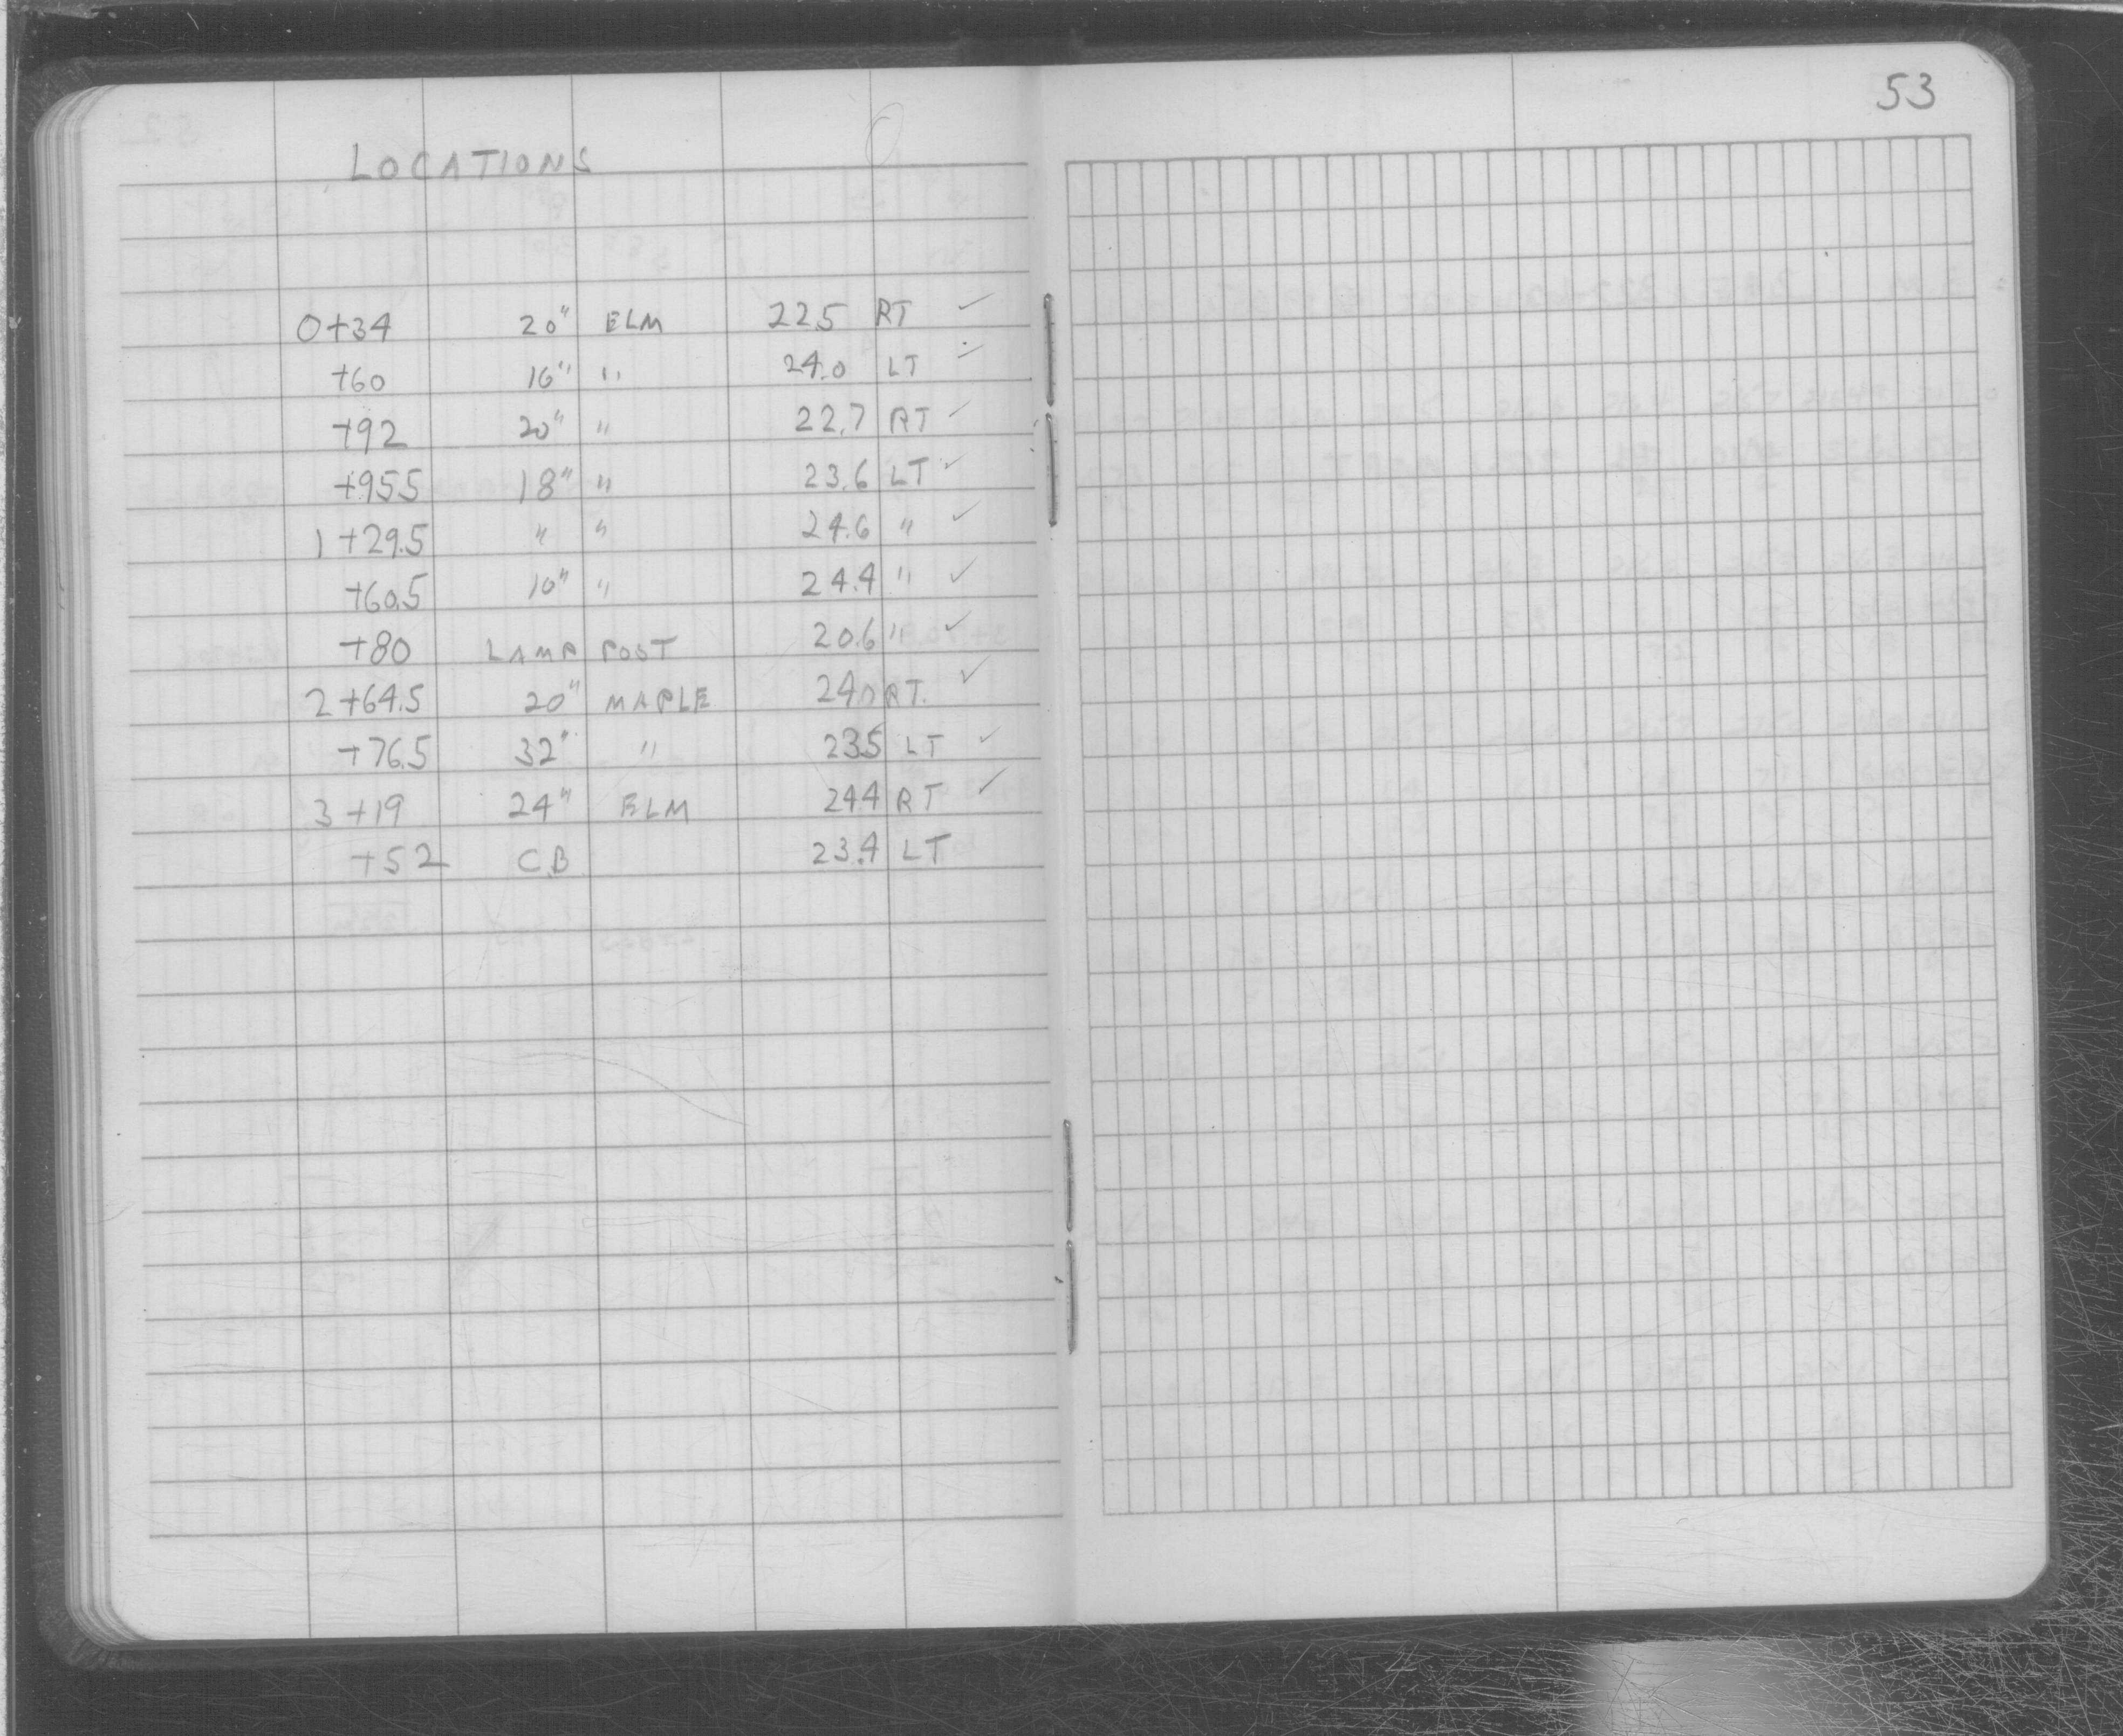 53
LOCATIONS
0+34 20" ELM 22.5 RT ✓
+60 16" " 24.0 LT ✓
+92 20" " 22.7 RT ✓
+95.5 18" " 23.6 LT ✓
1+29.5 " " 24.6 " ✓
+60.5 10" " 24.4 " ✓
+80 LAMP POST 20.6 " ✓
2+64.5 20" MAPLE 24.0 RT. ✓
+76.5 32" " 23.5 LT ✓
3+19 24" ELM 24.4 RT ✓
+52 C.B. 23.4 LT